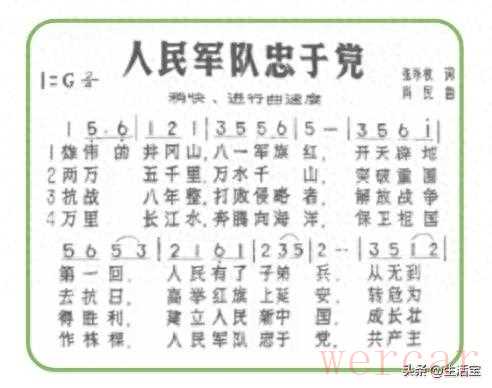 人民军队忠于党
1=G 2/4
张永枚 词
肖民 曲
稍快、进行曲速度
1 5.6 | 1 2 1 | 3 5 5 6 | 5 — | 3 5 6 i |
1雄伟的 井冈山,八一军旗 红, 开天辟地
2两万 五千里,万水千 山, 突破重围
3抗战 八年整,打败侵略 者, 解放战争
4万里 长江水,奔腾向海 洋, 保卫祖国
5 6 5 3 | 2 1 6 1 | 2 3 5 | 2 - - | 3 5 1 2 |
第一回, 人民有了 子弟 兵, 从无到
去抗日, 高举红旗 上延 安, 转危为
得胜利, 建立人民 新中 国, 成长壮
作栋樑, 人民军队 忠于 党, 共产主
wercar
头条@生活宝